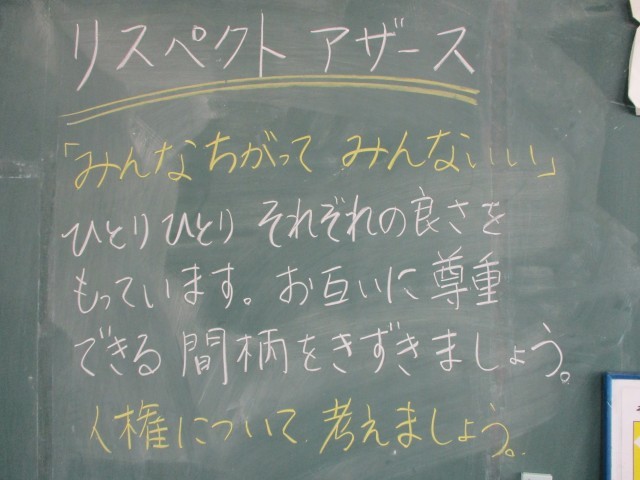 リスペクト アザース
「みんなちがって みんないい」
ひとりひとり それぞれの良さを
もっています。お互いに尊重
できる 間柄をきずきましょう。
人権について 考えましょう。